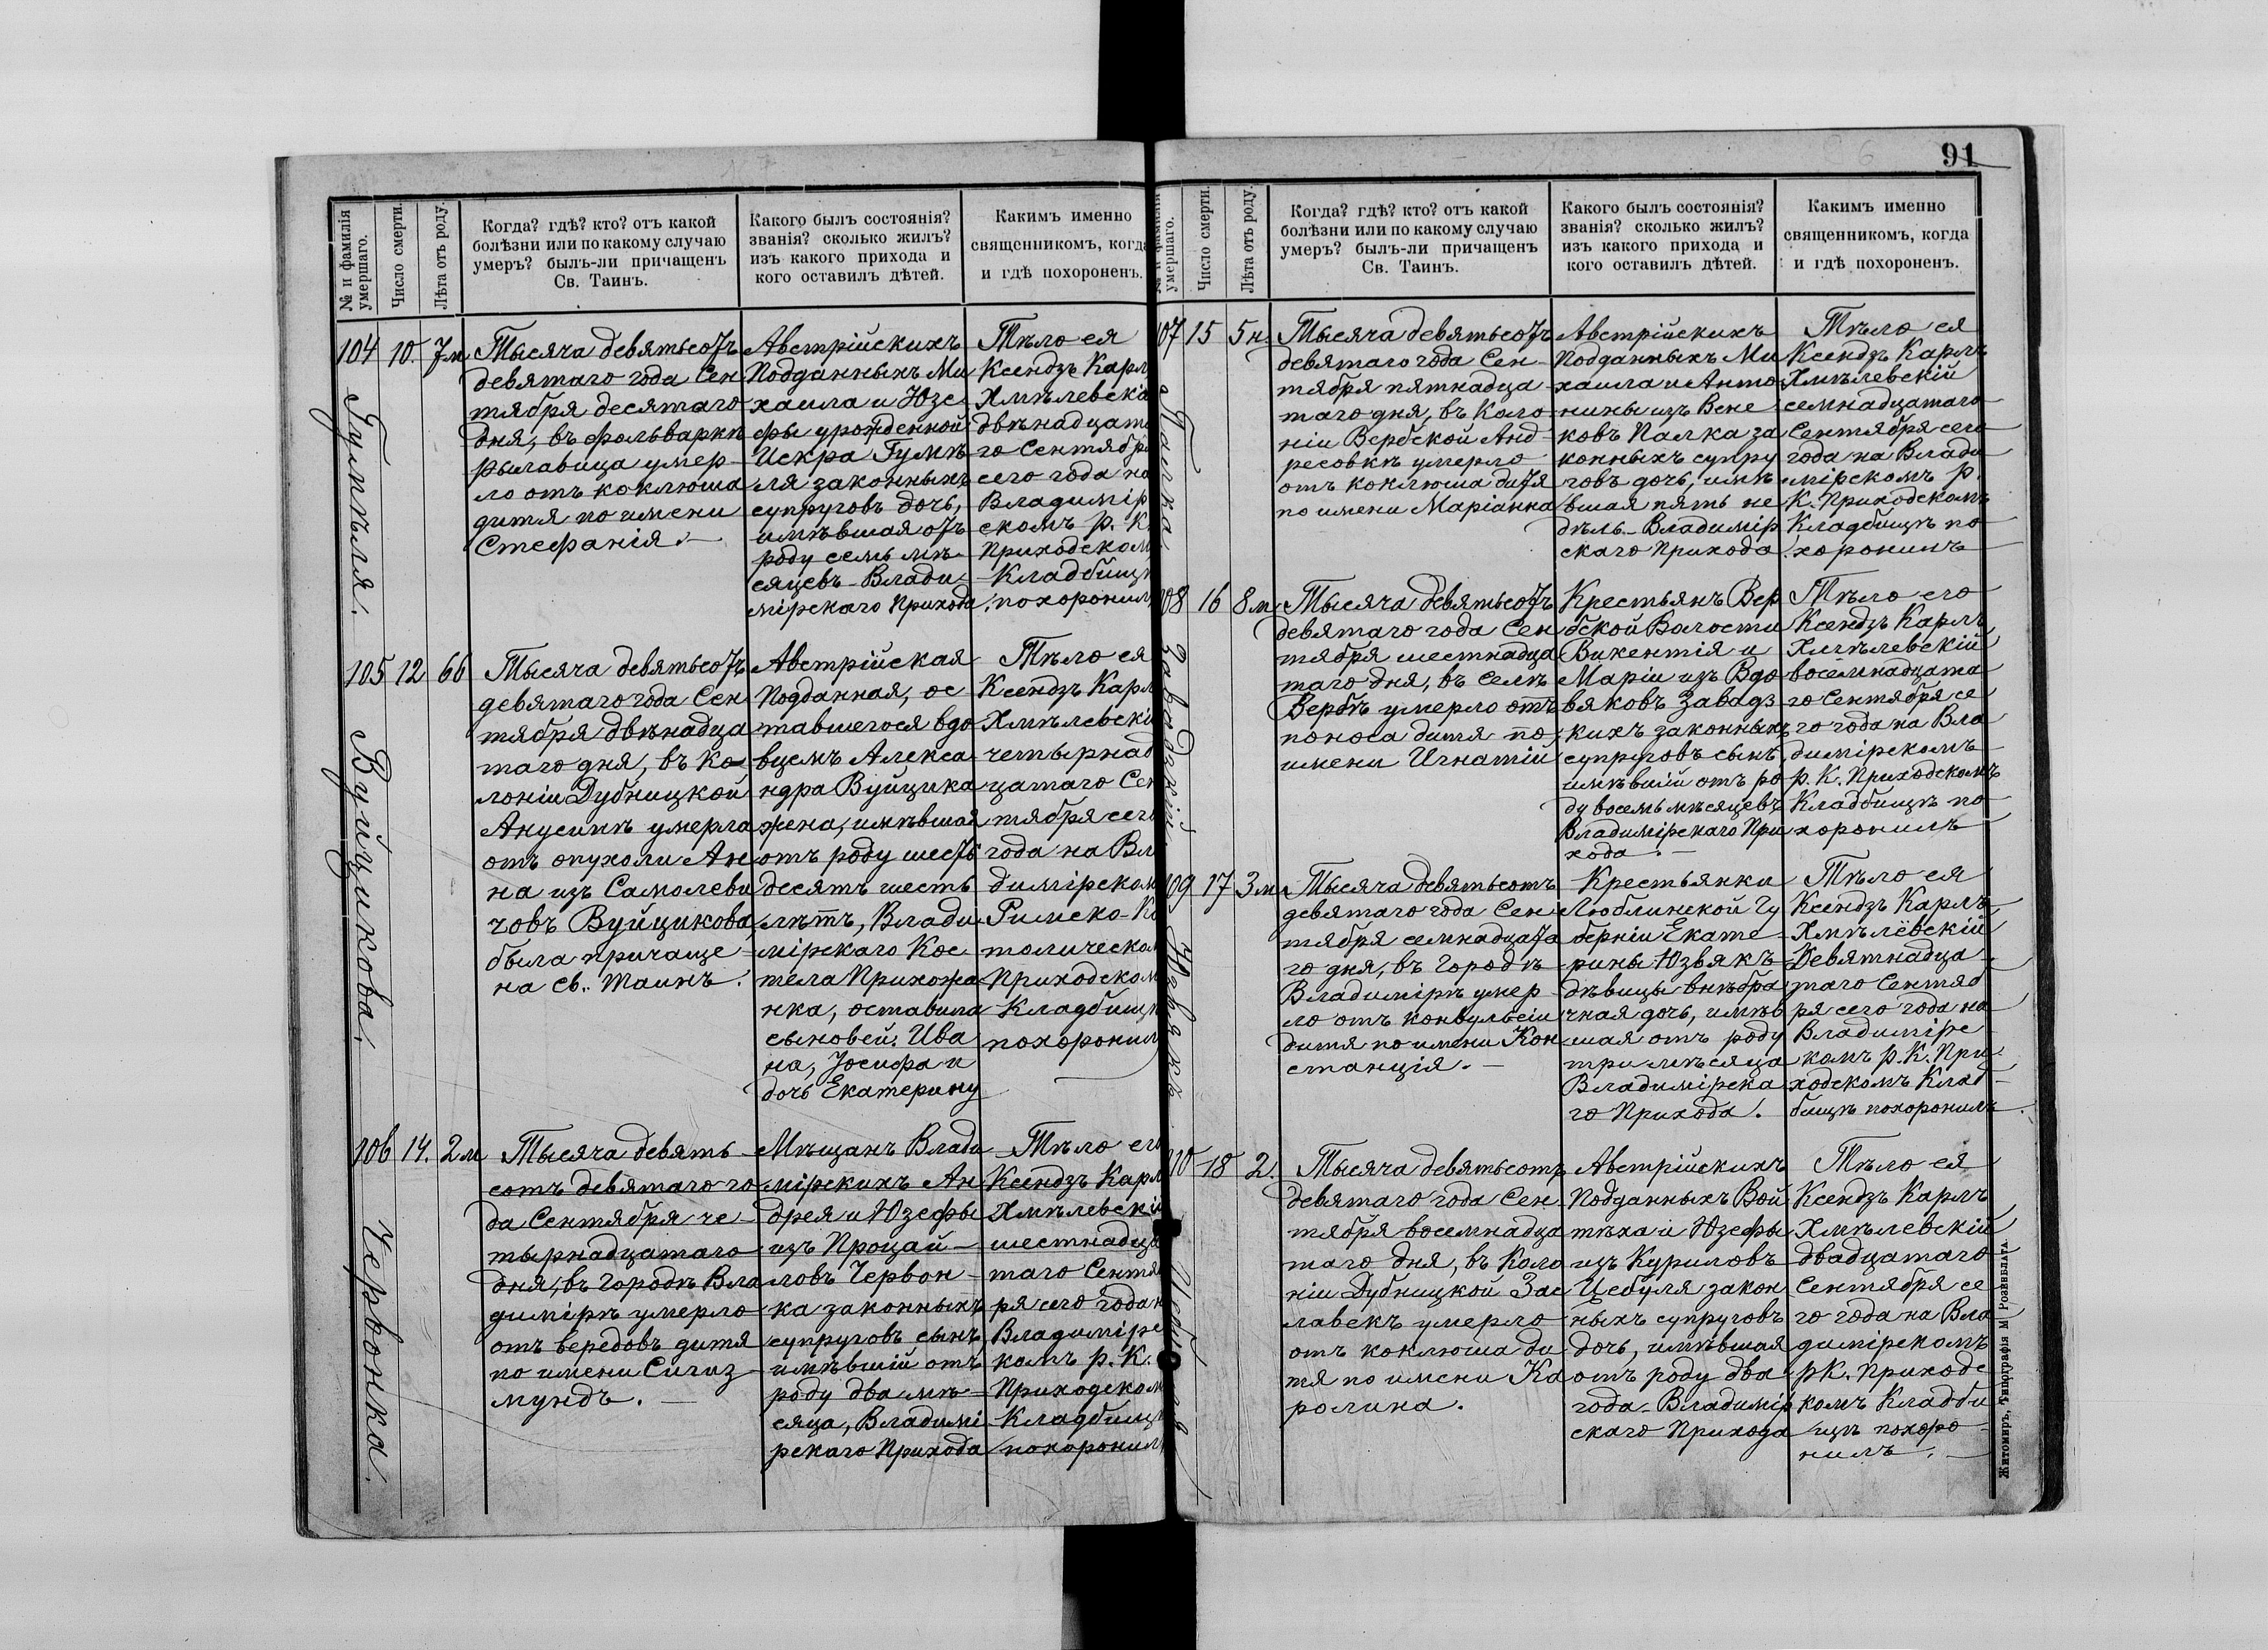 91
№ и фамилія умершаго.
Число смерти.
Лѣта отъ роду.
Когда? гдѣ? кто? отъ какой
болѣзни или по какому случаю
умеръ? былъ-ли причащенъ
Св. Таинъ.
Какого былъ состоянія?
званія? сколько жилъ?
изъ какого прихода и
кого оставилъ дѣтей.
Какимъ именно
священникомъ, когда
и гдѣ похороненъ.
104
Гумѣля.
10.
7м
Тысяча девятьсотъ
девятаго года Сен
тября десятаго
дня, въ фольваркѣ
Рылавица умер
ло отъ коклюша
дитя по имени
Стефанія.
Австрійскихъ
Подданныхъ Ми
хаила и Юзе
фы урожденной
Искра Гумѣ
ля законныхъ
супруговъ дочь,
имѣвшая отъ
роду семь мѣ
сяцевъ Влади
мірскаго Прихода
Тѣло ея
Ксендзъ Карл
Хмѣлевскі
двѣнадцата
го Сентября
сего года на
Владимір
скомъ р. К.
Приходском
Кладбищѣ
похоронил
105
Вуйцикова.
12
66
Тысяча девятьсотъ
девятаго года Сен
тября двѣнадца
таго дня, въ Ко
лоніи Дубницкой
Анусинѣ умерла
отъ опухоли Ан
на изъ Самолеви
човъ Вуйцикова,
была причаще
на св. Таинъ.
Австрійская
Подданная, ос
тавшегося вдо
вцемъ Алекса
ндра Вуйцика
жена, имѣвшая
отъ роду шесть
десятъ шесть
лѣтъ, Влади
мірскаго Кос
тела Прихожа
нка, оставила
сыновей: Ива
на, Іосифа и
дочь Екатерину
Тѣло ея
Ксендзъ Карл
Хмѣлевскі
четырнад
цатаго Сен
тября сего
года на Вл
димірском
Римско-К
толическом
Приходском
Кладбищѣ
похоронил
106
Червонка.
14.
2м
Тысяча девять
сотъ девятаго го
да Сентября че
тырнадцатаго
дня, въ городѣ Вла
димірѣ умерло
отъ вередовъ дитя
по имени Сигиз
мундъ.
Мѣщанъ Влади
мірскихъ Ан
дрея и Юзефы
изъ Процай
ловъ Червон
ка законныхъ
супруговъ сынъ
имѣвшій отъ
роду два мѣ
сяца, Владимі
рскаго Прихода
Тѣло его
Ксендзъ Карл
Хмѣлевскі
шестнадца
таго Сентя
ря сего года н
Владимірс
комъ р. К.
Приходском
Кладбищѣ
похоронил
№ и фамилія умершаго.
Число смерти.
Лѣта отъ роду.
Когда? гдѣ? кто? отъ какой
болѣзни или по какому случаю
умеръ? былъ-ли причащенъ
Св. Таинъ.
Какого былъ состоянія?
званія? сколько жилъ?
изъ какого прихода и
кого оставилъ дѣтей.
Какимъ именно
священникомъ, когда
и гдѣ похороненъ.
107
Палка
15
5н.
Тысяча девятьсотъ
девятаго года Сен
тября пятнадца
таго дня, въ Коло
ніи Вербской Анд
ресовкѣ умерло
отъ коклюша дитя
по имени Маріанна
Австрійскихъ
Подданныхъ Ми
хаила и Анто
нины изъ Вене
ковъ Палка за
конныхъ супру
говъ дочь, имѣ
вшая пять не
дѣль Владимір
скаго Прихода
Тѣло ея
Ксендзъ Карлъ
Хмѣлевскій
семнадцатаго
Сентября сего
года на Влади
мірскомъ р.
К. Приходскомъ
Кладбищѣ по
хоронилъ
108
Завадзкій.
16
8м.
Тысяча девятьсотъ
девятаго года Сен
тября шестнадца
таго дня, въ селѣ
Вербѣ умерло отъ
поноса дитя по
имени Игнатій
Крестьянъ Вер
бской Волости
Викентія и
Маріи изъ Вдо
вяковъ Завадз
кихъ законныхъ
супруговъ сынъ,
имѣвшій отъ ро
ду восемь мѣсяцевъ
Владимірскаго При
хода.
Тѣло его
Ксендзъ Карлъ
Хмѣлевскій
восемнадцата
го Сентября се
го года на Вла
димірскомъ
р. К. Приходскомъ
Кладбищѣ по
хоронилъ
109
Юзвякъ
17
3м
Тысяча девятьсотъ
девятаго года Сен
тября семнадцата
го дня, въ Городѣ
Владимірѣ умер
ло отъ конвульсіи
дитя по имени Кон
станція.
Крестьянки
Люблинской Гу
берніи Екате
рины Юзвякъ
дѣвицы внѣбра
чная дочь, имѣв
шая отъ роду
три мѣсяца
Владимірска
го Прихода.
Тѣло ея
Ксендзъ Карлъ
Хмѣлевскій
Девятнадца
таго Сентяб
ря сего года на
Владимірс
комъ р. К. При
ходскомъ Клад
бищѣ похоронилъ
110
18
2.
Тысяча девятьсотъ
девятаго года Сен
тября восемнадца
таго дня, въ Коло
ніи Дубницкой Зас
лавекъ умерло
отъ коклюша ди
тя по имени Ка
ролина.
Австрійскихъ
Подданныхъ Вой
тѣха и Юзефы
изъ Куриловъ
Цебуля закон
ныхъ супруговъ
дочь, имѣвшая
отъ роду два
года Владимір
скаго Прихода
Тѣло ея
Ксендзъ Карлъ
Хмѣлевскій
двадцатаго
Сентября се
го года на Вла
димірскомъ
рК. Приходс
комъ Кладби
щѣ похоро
нилъ.
Житомиръ, Типографія М Розенблата